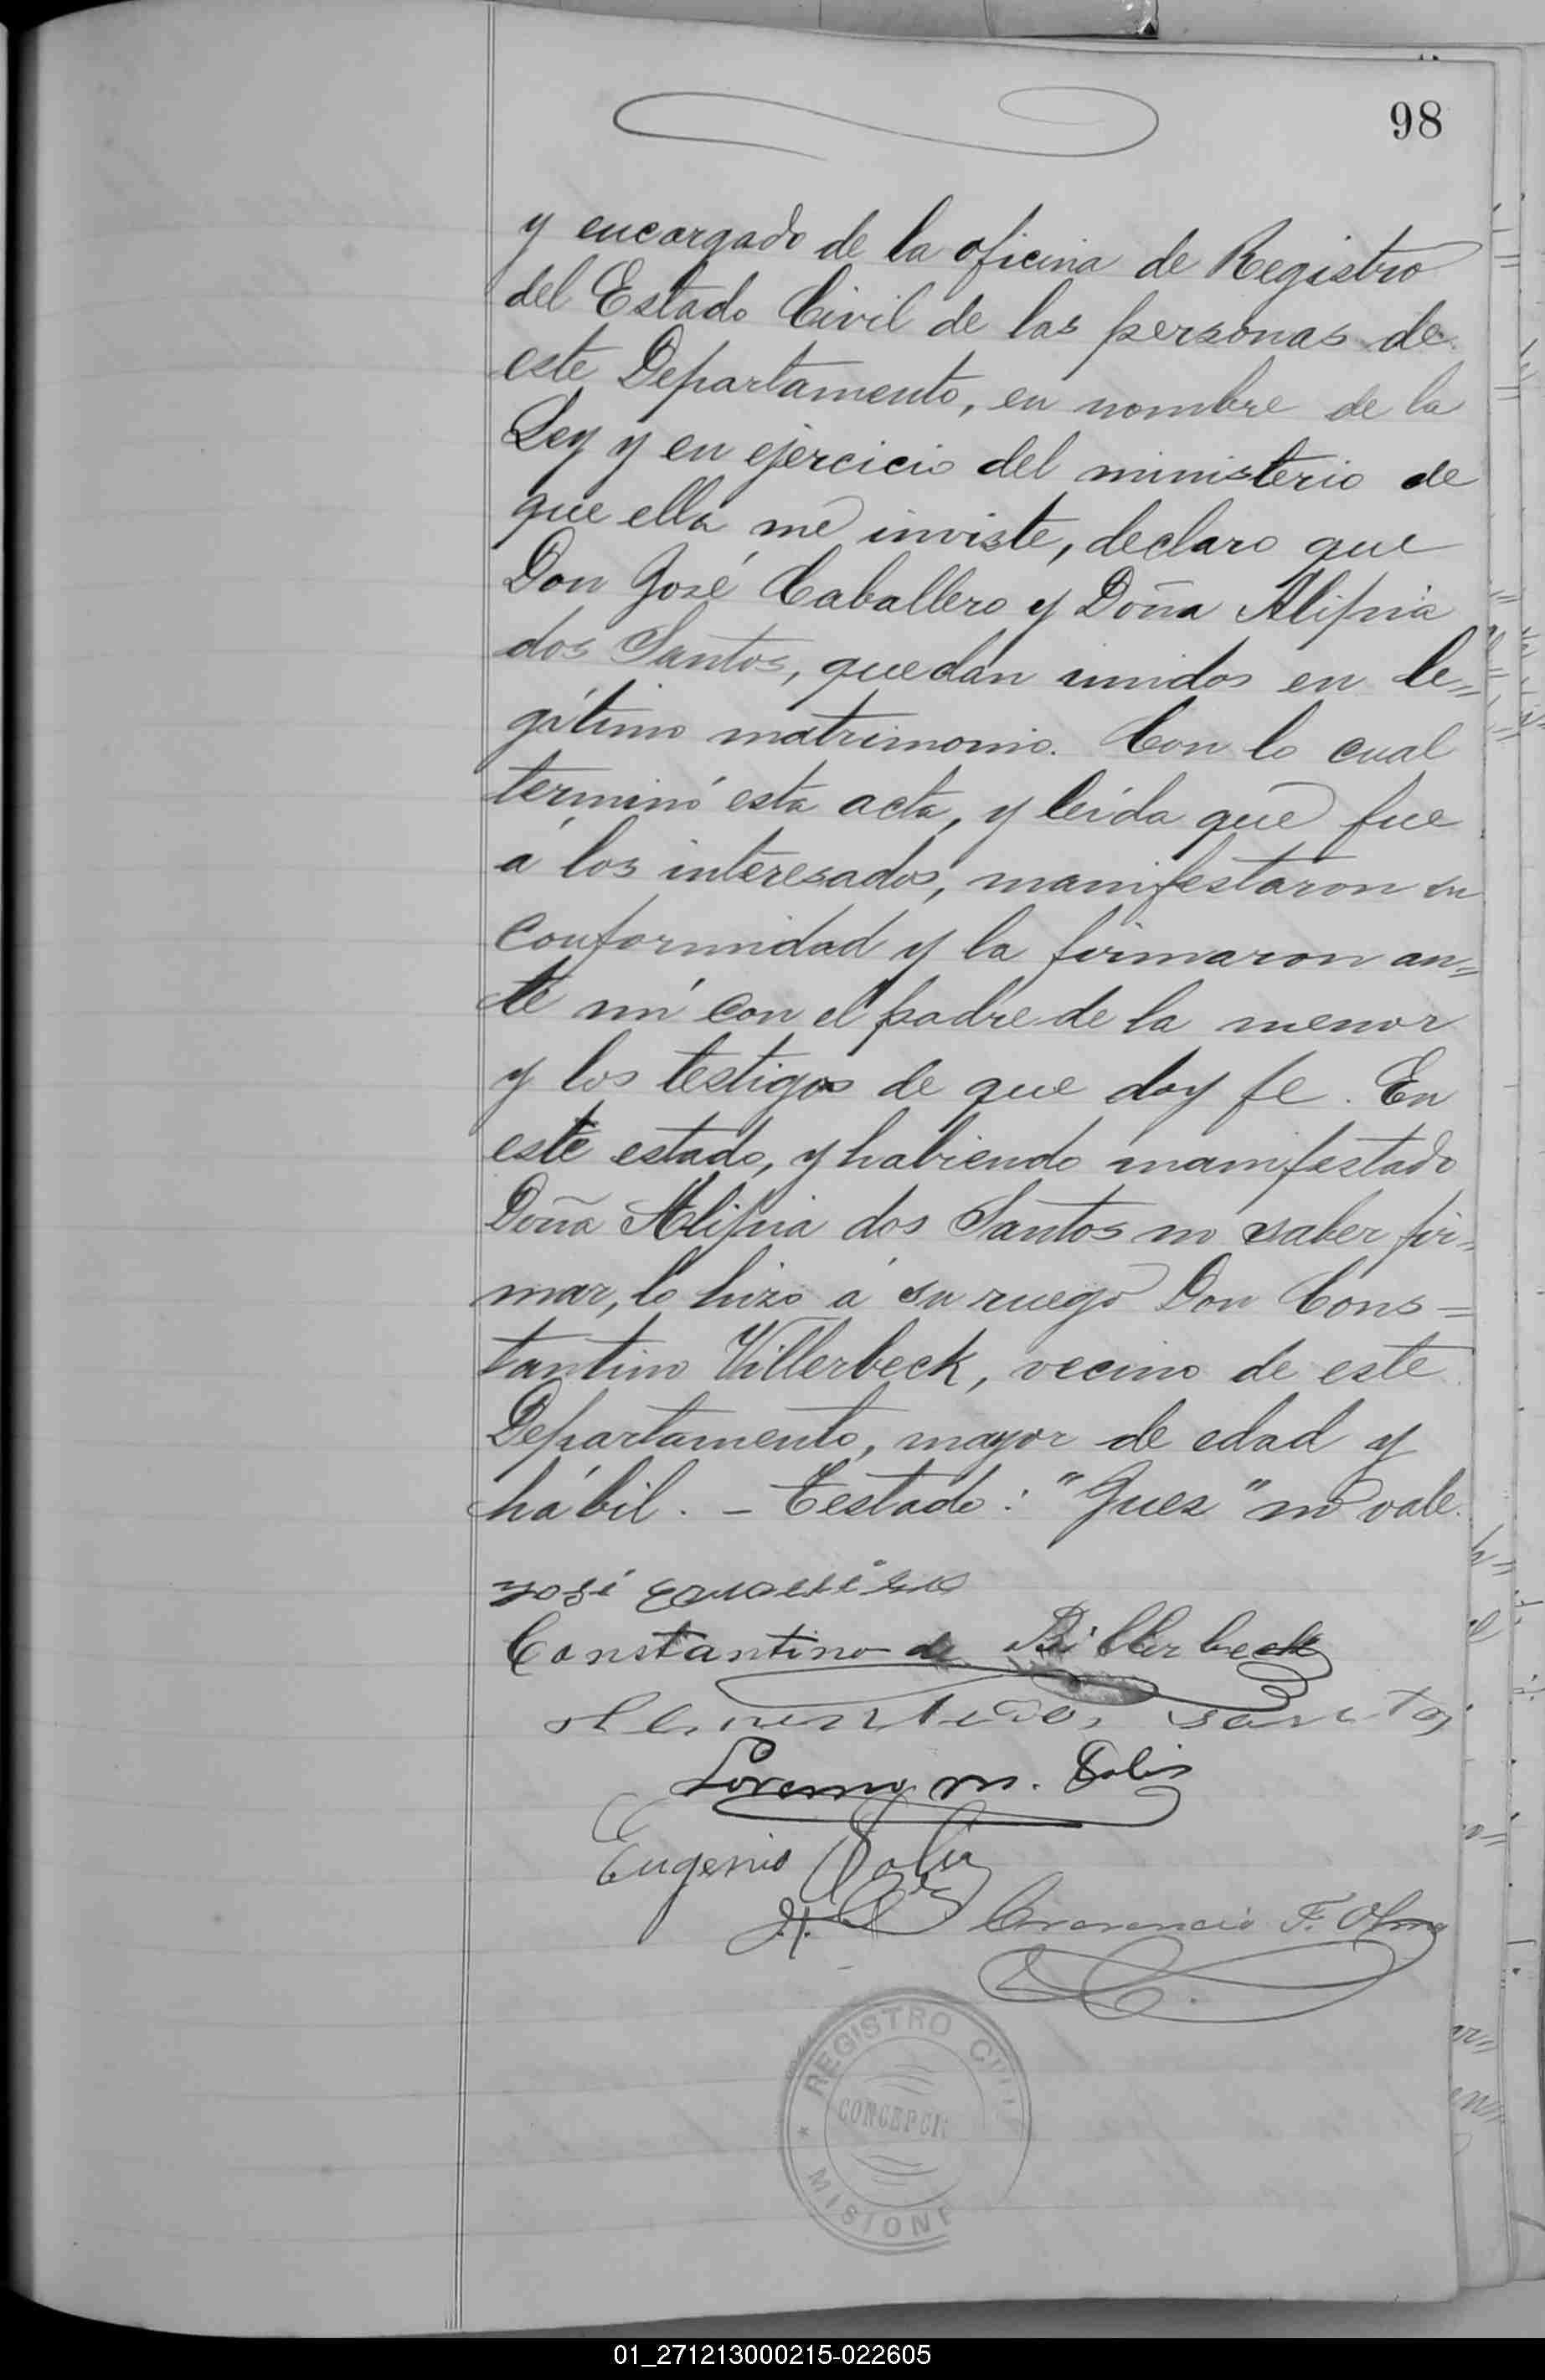 98
y encargado de la oficina de Registro
del Estado Civil de las personas de
este Departamento, en nombre de la
Ley y en ejercicio del ministerio de
que ella me inviste, declaro que
Don José Caballero y Doña Alipia
dos Santos, quedan unidos en le=
gítimo matrimonio. Con lo cual
terminó esta acta, y leída que fue
á los interesados, manifestaron su
conformidad y la firmaron an=
te mí con el padre de la menor
y los testigos de que doy fe. En
este estado, y habiendo manifestado
Doña Alipia dos Santos no saber fir=
mar, lo hizo á su ruego Don Cons=
tantino Villerbeck, vecino de este
Departamento, mayor de edad y
hábil. - Testado: "Juez" no vale.
José
Constantino de Billerbeck
dos Santos
Lorenzo M. Solis
Eugenio Solis
Crecencio F.
REGISTRO CIVIL
CONCEPCI
MISIONE
01_271213000215-022605